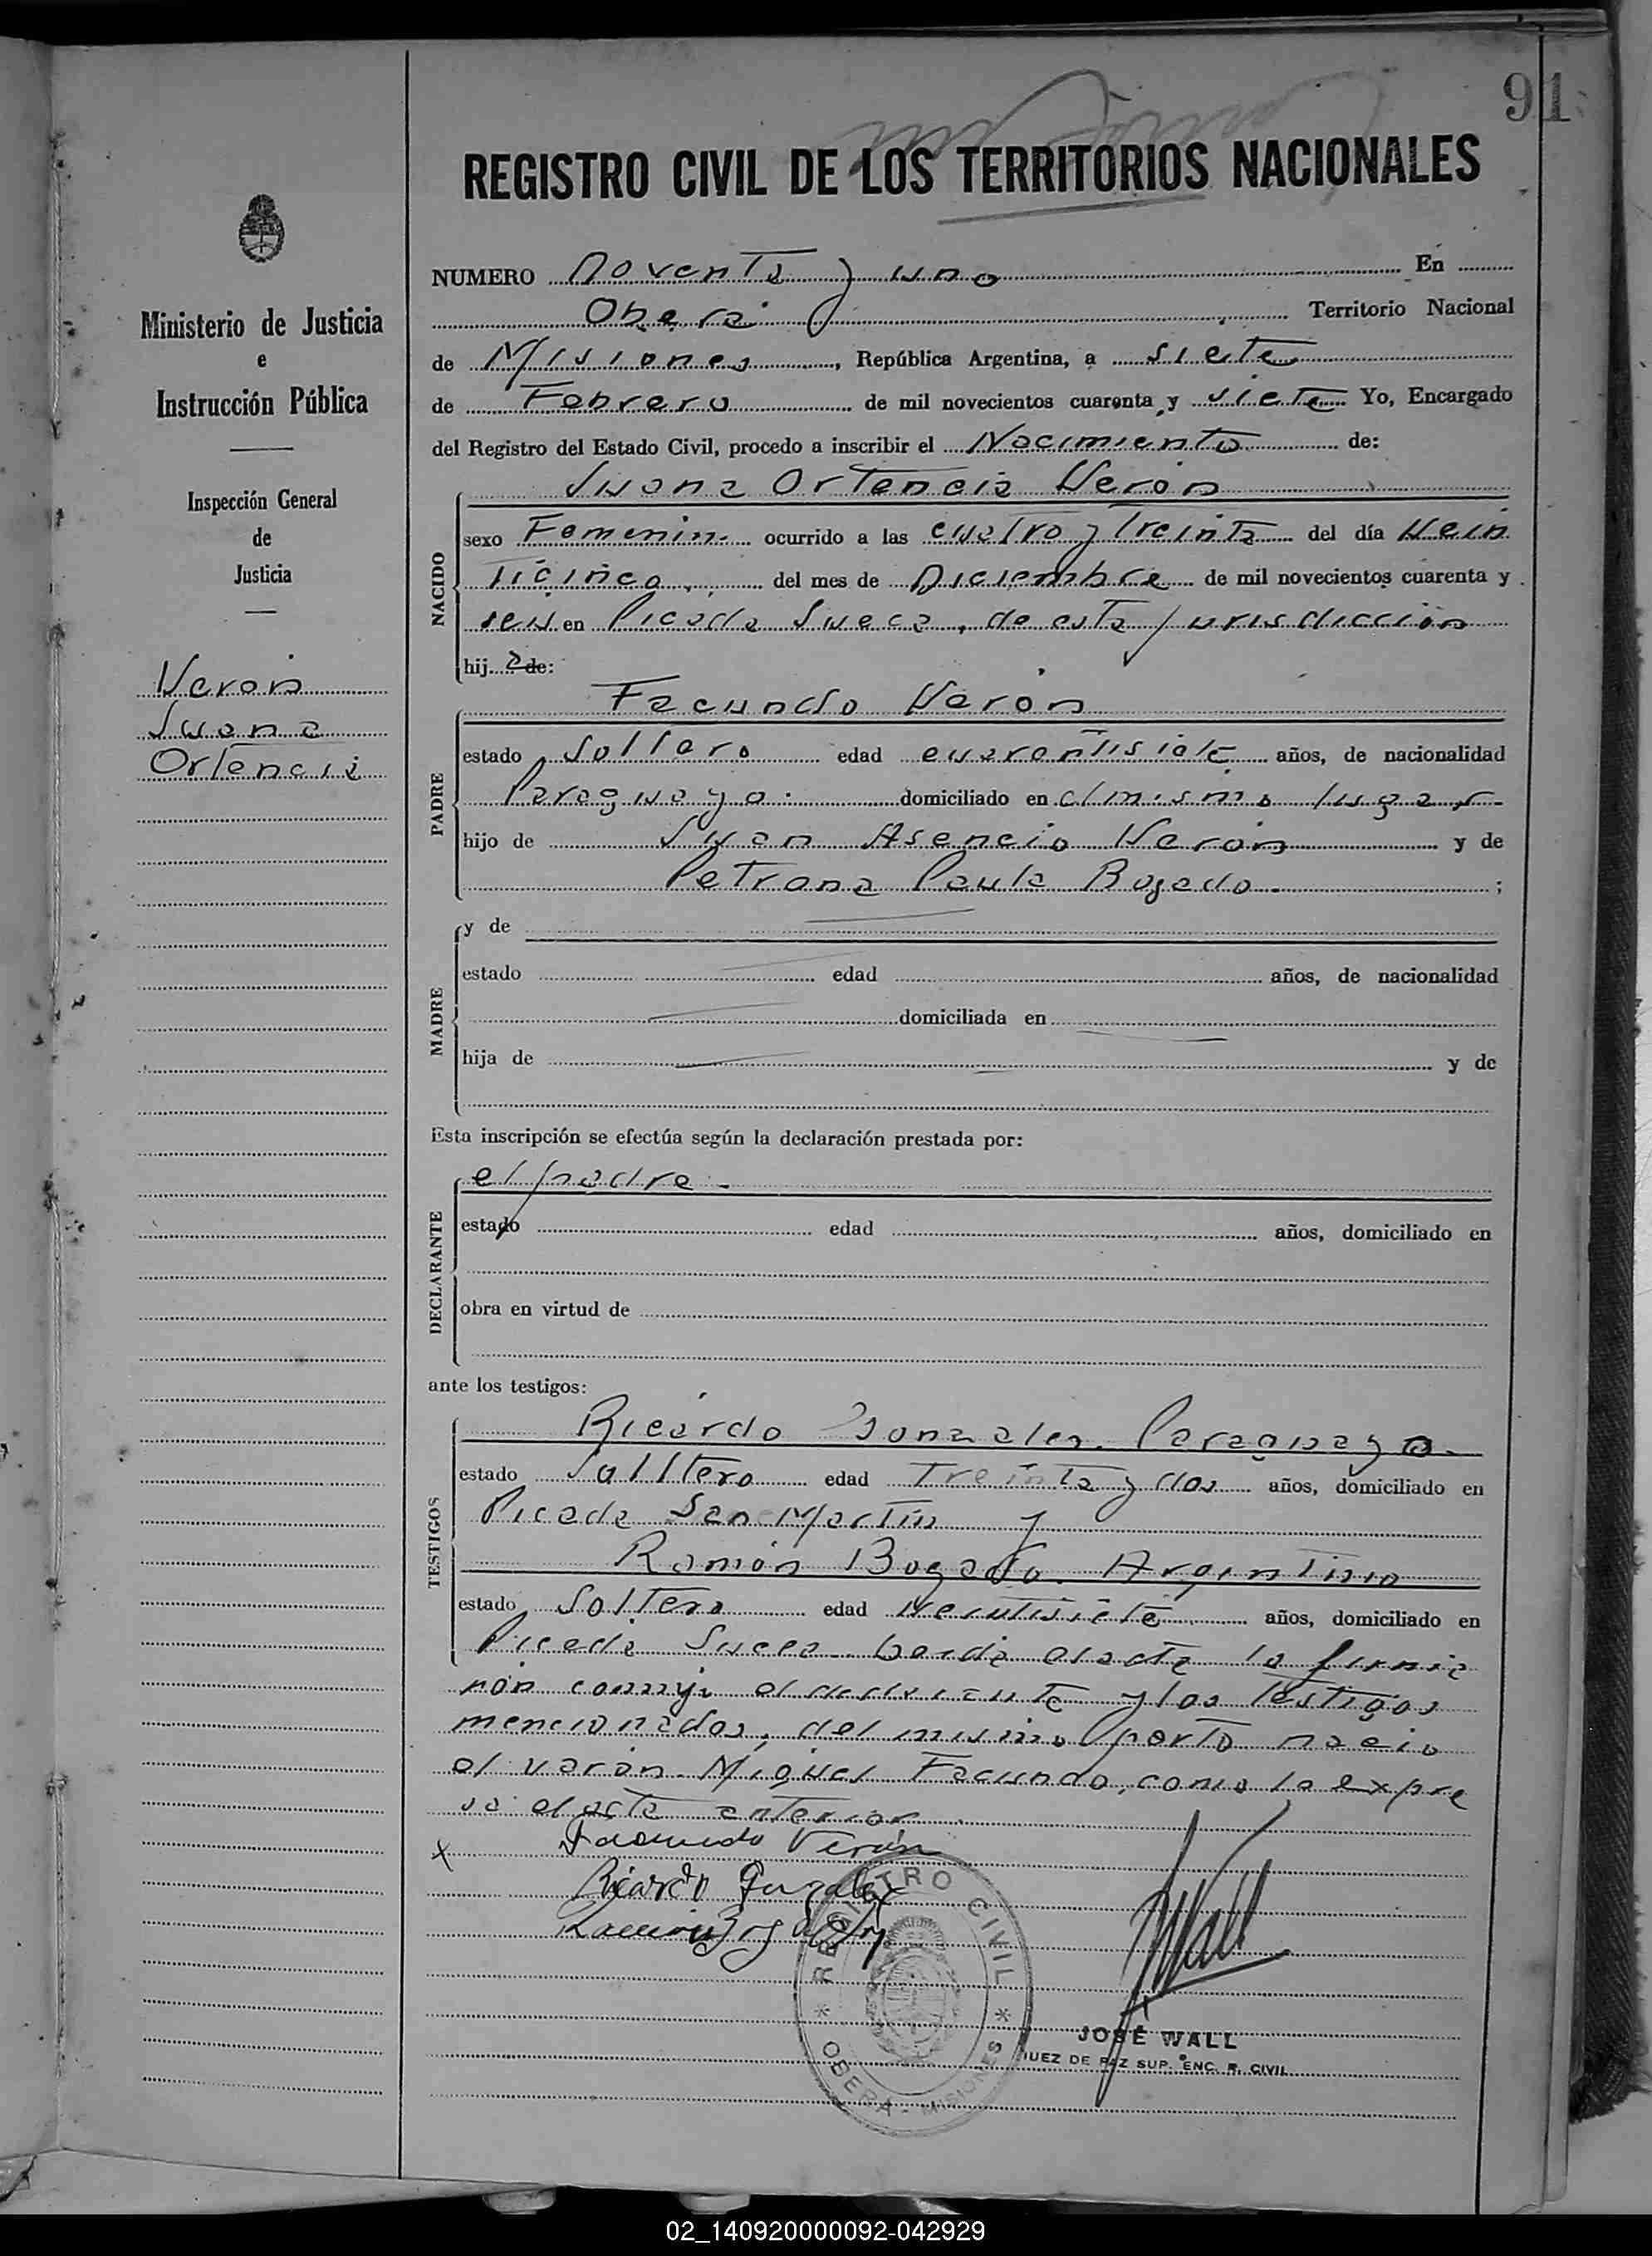 91
REGISTRO CIVIL DE LOS TERRITORIOS NACIONALES
Ministerio de Justicia
e
Instrucción Pública
Inspección General
de
Justicia
Veron
Juana
Ortencia
NUMERO noventa y uno En
Oberá Territorio Nacional
de Misiones, República Argentina, a siete
de Febrero de mil novecientos cuarenta y siete Yo, Encargado
del Registro del Estado Civil, procedo a inscribir el Nacimiento de:
Juana Ortencia Verón
NACIDO
sexo Femenin. ocurrido a las cuatro y treinta del día Vein
ticinco del mes de Diciembre de mil novecientos cuarenta y
seis en Picada Sueca, de esta jurisdicción
hij a de:
Facundo Verón
PADRE
estado soltero edad cuarentisiete años, de nacionalidad
Paraguayo. domiciliado en el mismo lugar
hijo de Juan Asencio Verón y de
Petrona Paula Bogado. ;
MADRE
y de
estado edad años, de nacionalidad
domiciliada en
hija de y de
Esta inscripción se efectúa según la declaración prestada por:
el padre.
DECLARANTE
estado edad años, domiciliado en
obra en virtud de
ante los testigos:
TESTIGOS
Ricardo Gonzales. Paraguayo.
estado Solltero edad Treinta y dos años, domiciliado en
Picada San Martín y
Ramón Bogado. Argentino
estado Soltero edad Veintisiete años, domiciliado en
Picada Sueca. Leida el acta la firma
ron conmigo el declarante y los testigos
mencionados, del mismo parto nacio
el varón Miguel Facundo, como lo expre
sa el acta anterior
x Facundo Verón
Ricardo Gonzalez
Ramón Bogado
REGISTRO CIVIL
* OBERÁ - MISIONES *
JWall
JOSÉ WALL
JUEZ DE PAZ SUP. ENC. R. CIVIL
02_140920000092-042929